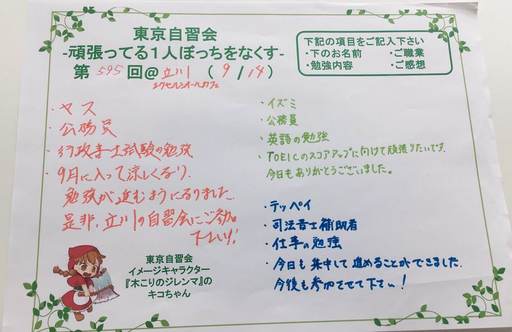 東京自習会
-頑張ってる1人ぼっちをなくす-
第595回@立川(9/14)
エクセルシオールカフェ
下記の項目をご記入下さい
・下のお名前 ・ご職業
・勉強内容 ・ご感想
・ヤス
・公務員
・行政書士試験の勉強
・9月に入って涼しくなり、
勉強が進むようになりました。
是非、立川の自習会にご参加
下さい!
・イズミ
・公務員
・英語の勉強
・TOEICのスコアアップに向けて頑張りたいです。
今日もありがとうございました。
・テッペイ
・司法書士補助者
・仕事の勉強
・今日も集中して進めることができました。
今後も参加させて下さい!
東京自習会
イメージキャラクター
『木こりのジレンマ』の
キコちゃん